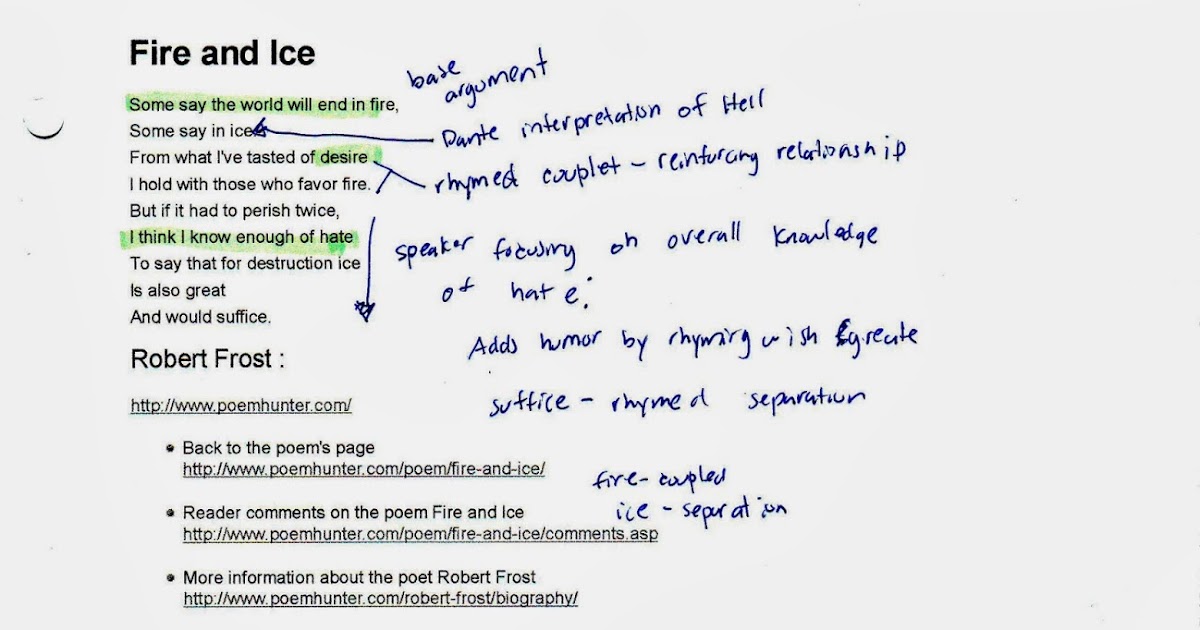 Fire and Ice
base
argument
Some say the world will end in fire,
Some say in ice.
Dante interpretation of Hell
From what I've tasted of desire
I hold with those who favor fire.
rhymed couplet - reinforcing relationship
But if it had to perish twice,
I think I know enough of hate
To say that for destruction ice
Is also great
And would suffice.
speaker focusing on overall knowledge
of hate.
Adds humor by rhyming with greate
suffice - rhymed separation
Robert Frost :
http://www.poemhunter.com/
• Back to the poem's page
http://www.poemhunter.com/poem/fire-and-ice/
fire - coupled
ice - separation
• Reader comments on the poem Fire and Ice
http://www.poemhunter.com/poem/fire-and-ice/comments.asp
• More information about the poet Robert Frost
http://www.poemhunter.com/robert-frost/biography/